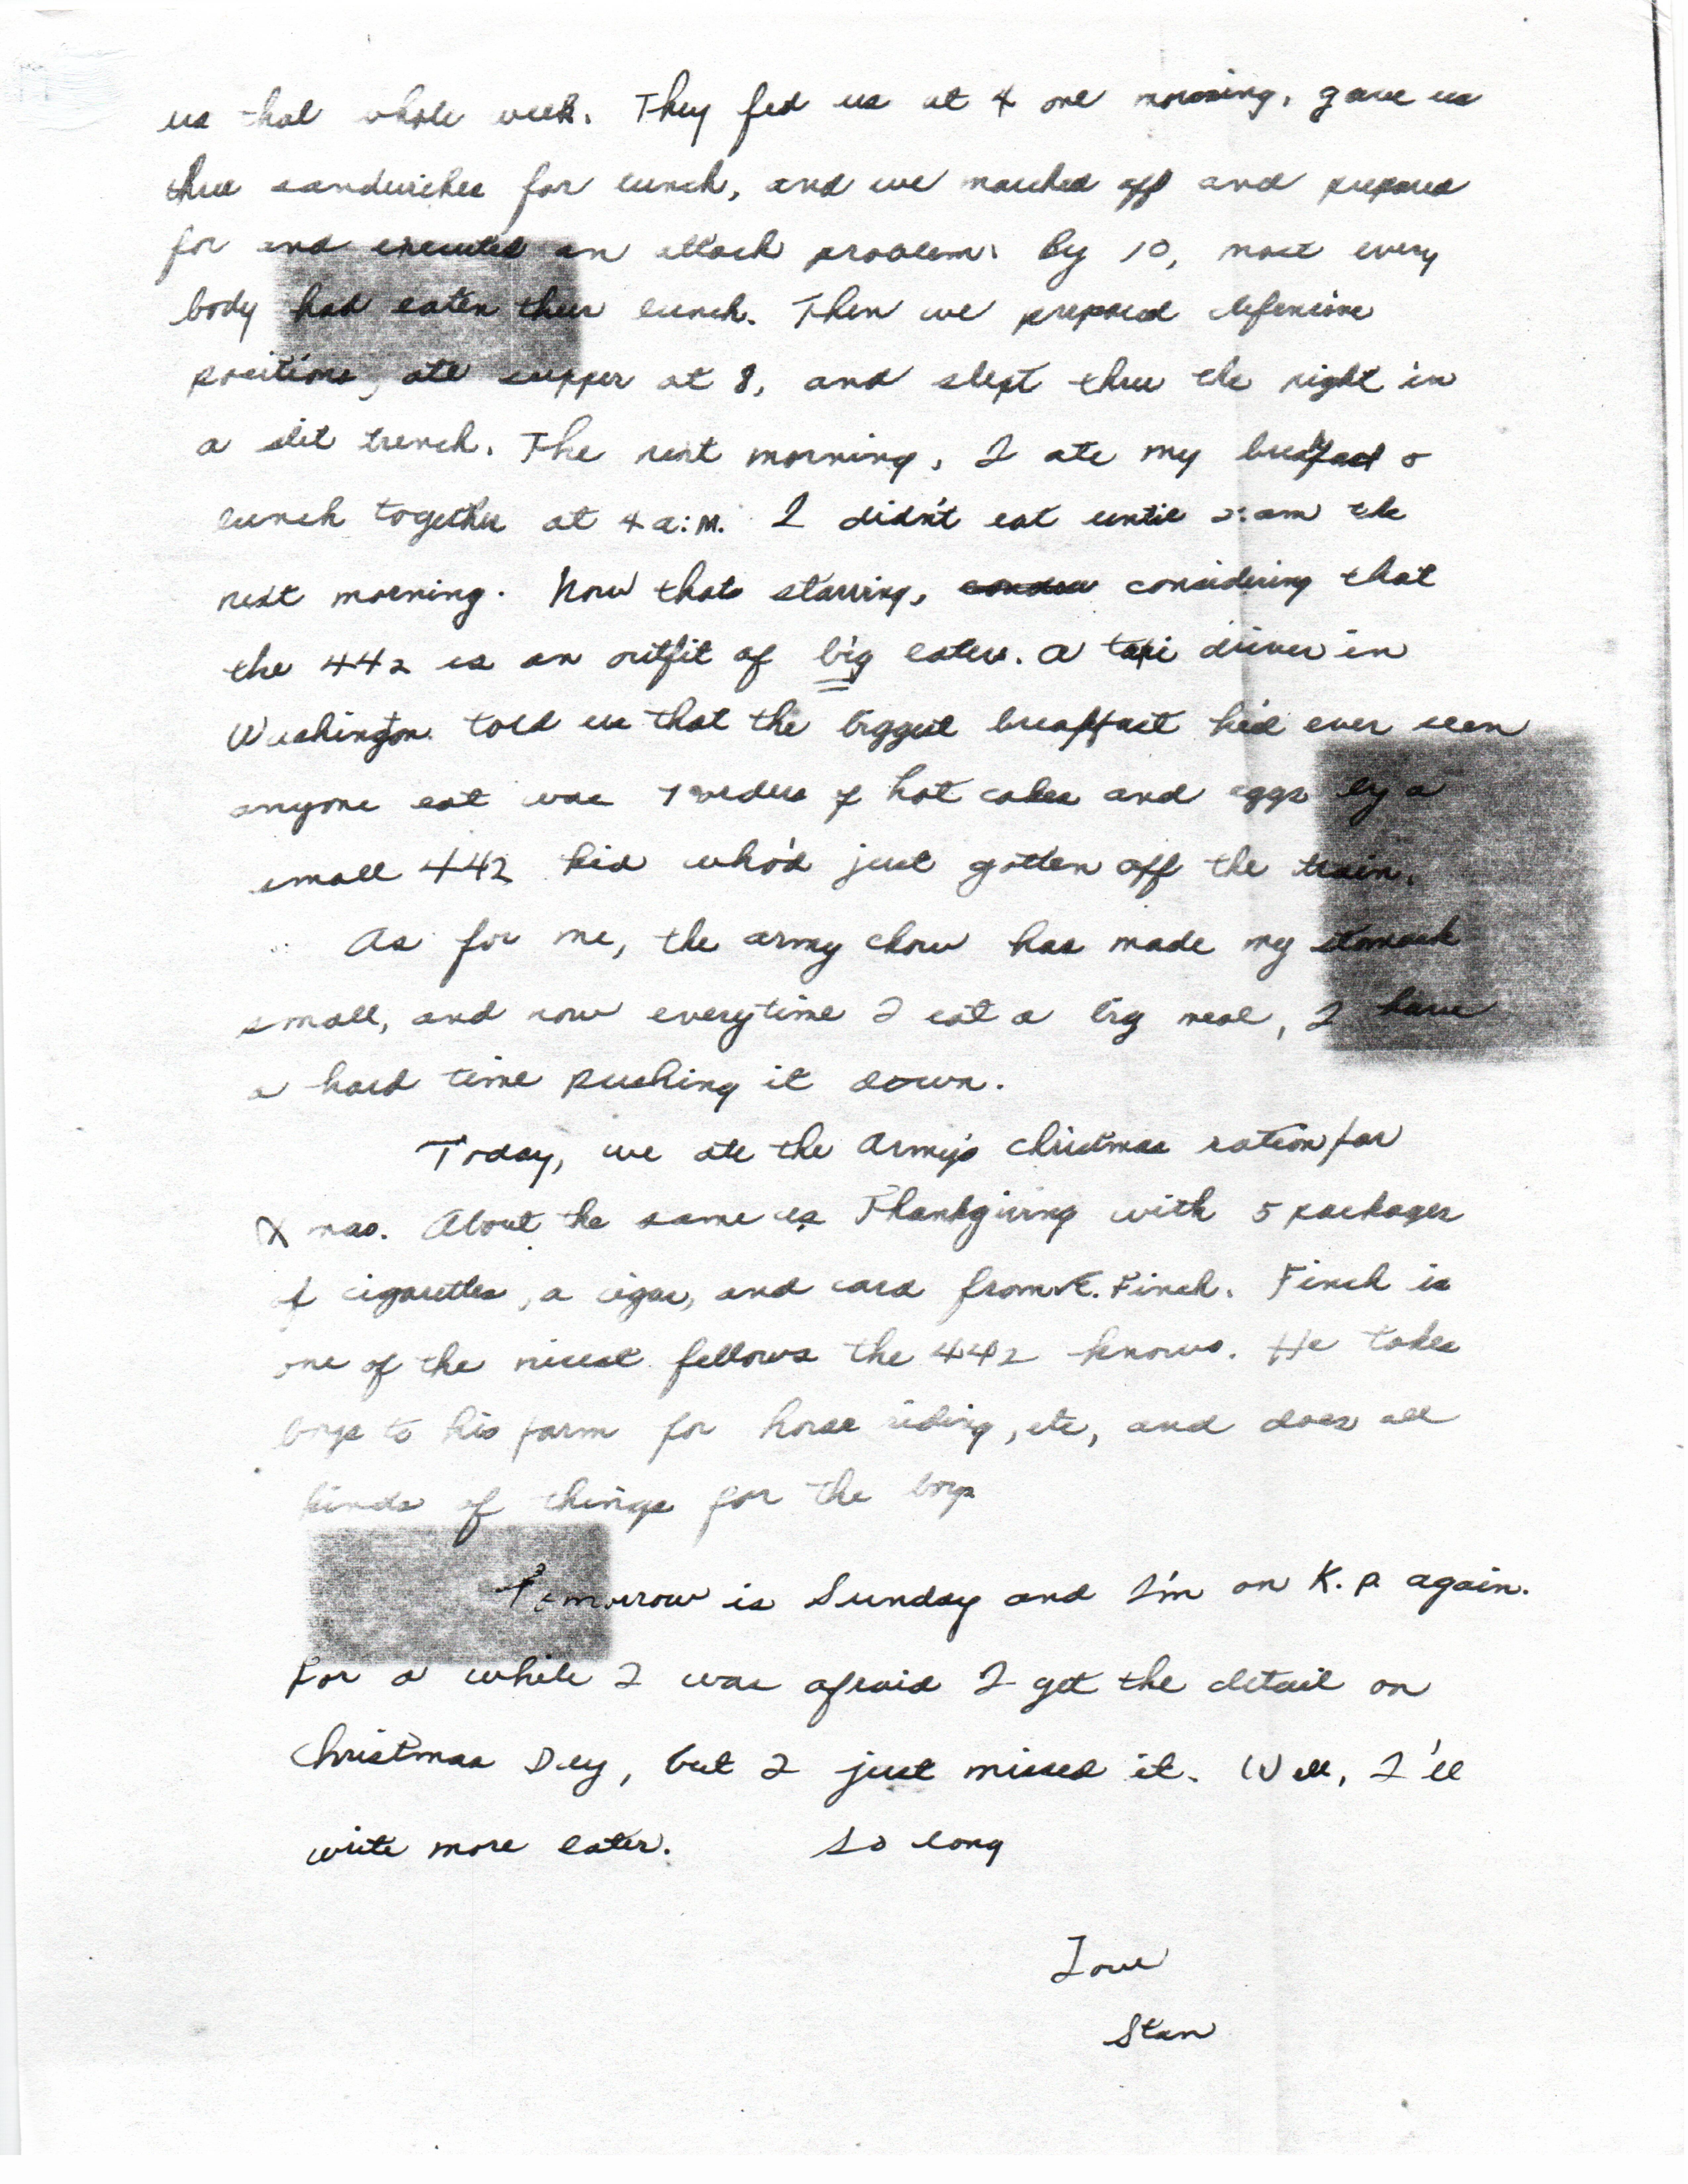 us that whole week. They fed us at 4 one morning, gave us
three sandwiches for lunch, and we marched off and prepared
for and executed an attack problem. By 10, most every
body had eaten their lunch. Then we prepared defensive
positions, ate supper at 8, and slept thru the night in
a slit trench. The next morning, I ate my breakfast &
lunch together at 4 a.m. I didn't eat until 2:am the
next morning. Now thats starving, considering that
the 442 is an outfit of big eaters. A taxi driver in
Washington told us that the biggest breakfast he'd ever seen
anyone eat was 7 orders of hot cakes and eggs by a
small 442 kid who'd just gotten off the train.
As for me, the army chow has made my stomach
small, and now everytime I eat a big meal, I have
a hard time pushing it down.
Today, we ate the Army's Christmas ration for
Xmas. About the same as Thankgiving with 5 packages
of cigarettes, a cigar, and card from E. Finch. Finch is
one of the nicest fellows the 442 knows. He takes
boys to his farm for horse riding, etc, and does all
kinds of things for the boys
Tomorrow is Sunday and I'm on K.P. again.
For a while I was afraid I get the detail on
Christmas Day, but I just missed it. Well, I'll
write more later. So long
Love
Stan